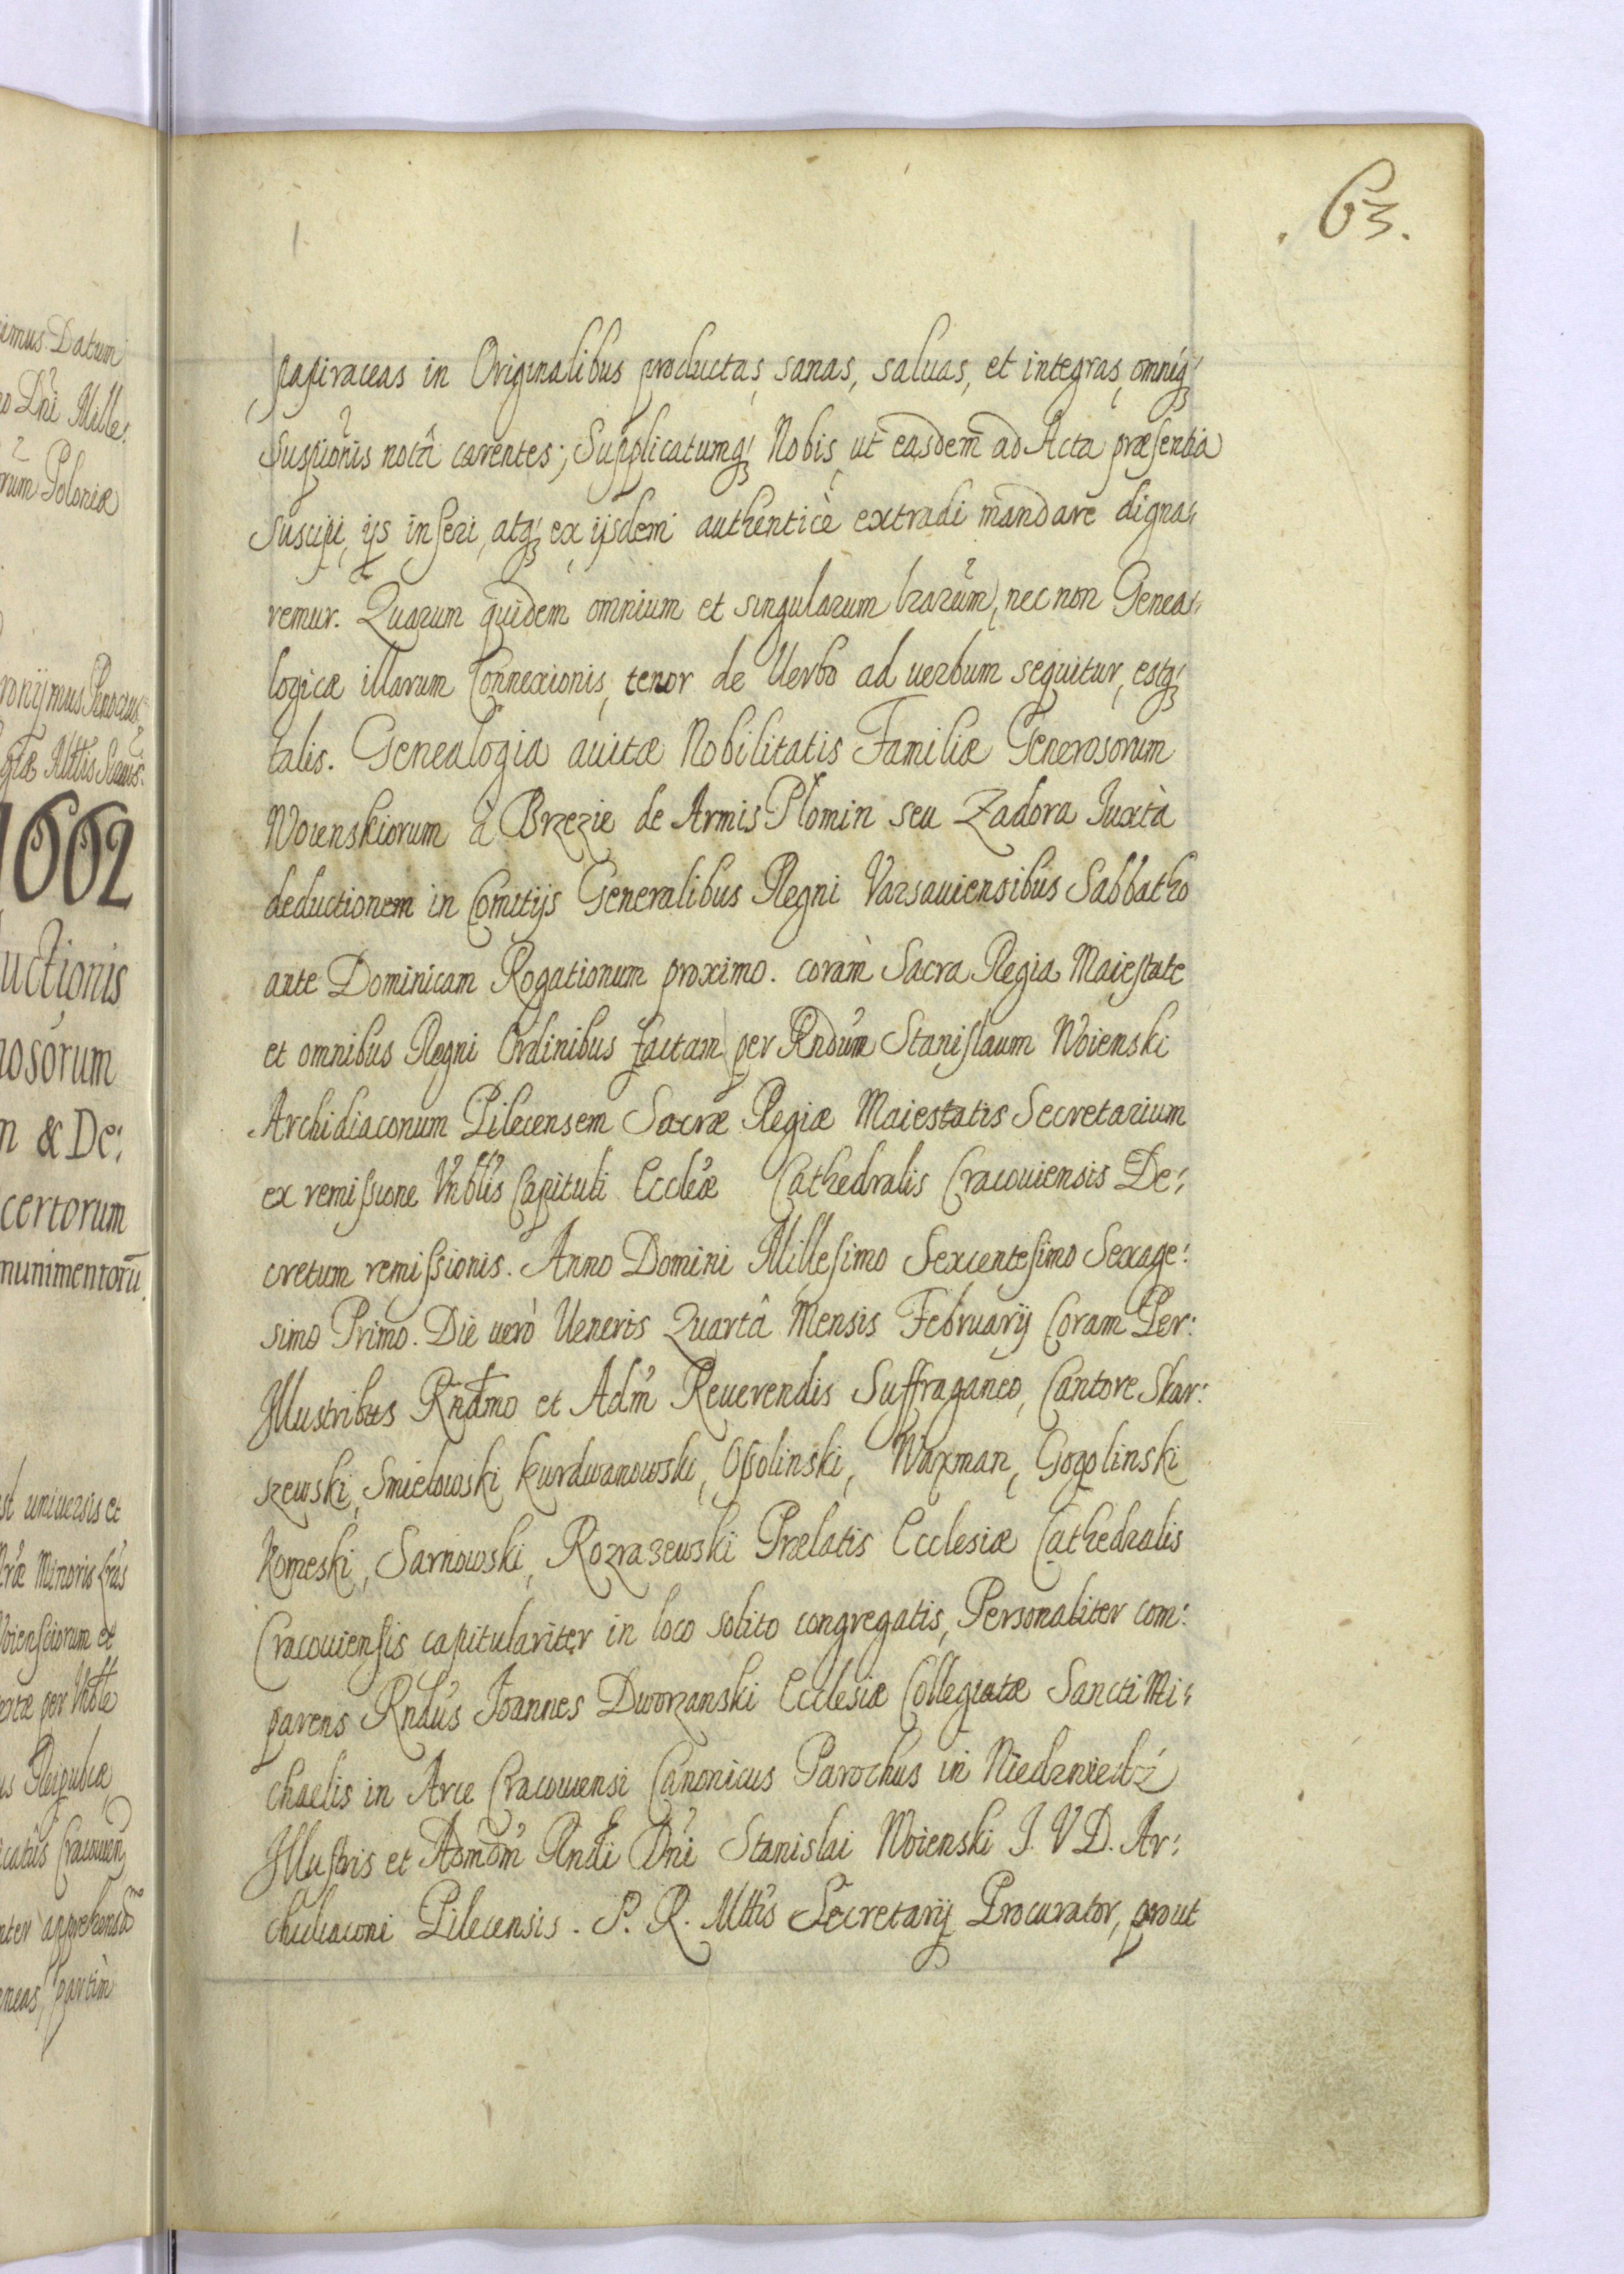 63.
papiraceas in Originalibus productas, sanas, saluas, et integras, omniq;
suspiõnis notâ carentes; Supplicatumq; Nobis, ut easdem ad Acta præsentia
suscipi, ijs inseri, atq; ex ijsdem authenticè extradi mandare digna:
remur. Quarum quidem omnium et singularum lrarum, nec non Genea:
logicæ illarum Connexionis, tenor de Uerbo ad uerbum sequitur, estq;
talis. Genealogia auitæ Nobilitatis Familiæ Generosorum
Woienskiorum à Brzezie de Armis Płomin seu Zadora Iuxtà
deductionem in Comitijs Generalibus Regni Varsauiensibus Sabbatho
ante Dominicam Rogationum proximo. coràm Sacra Regia Maiestate
et omnibus Regni Ordinibus factam per Rndum Stanislaum Woienski
Archidiaconum Pilecensem Sacræ Regiæ Maiestatis Secretarium
ex remissione Vnblis Capituli Eccleæ Cathedralis Cracouiensis De:
cretum remissionis. Anno Domini Millesimo Sexcentesimo Sexage:
simo Primo. Die uerò Ueneris Quartâ Mensis Februarij Coram Per:
Illustribus Rndmo et Adm Reuerendis Suffraganeo, Cantore Skar:
szewski, Smiełowski Kurdwanowski, Ossolinski, Waxman, Gogolinski
Komeski, Sarnowski, Rozrazewski Prælatis Ecclesiæ Cathedralis
Cracouiensis capitulariter in loco solito congregatis, Personaliter com:
parens Rndus Ioannes Dworzanski Ecclesiæ Collegiatæ Sancti Mi:
chaelis in Arce Cracouiensi Canonicus Parochus in Niedzwiedź
Illustris et Admdm Rndi Dni Stanislai Woienski I. V D. Ar:
chidiaconi Pilecensis. S. R. Mttis Secretarij Procurator, prout
imus Datum
Dni Mille:
rum Poloniæ
1662
uctionis
osorum
n & De:
certorum
munimentorū.
st uniuersis et
Woiensciorum et
partim